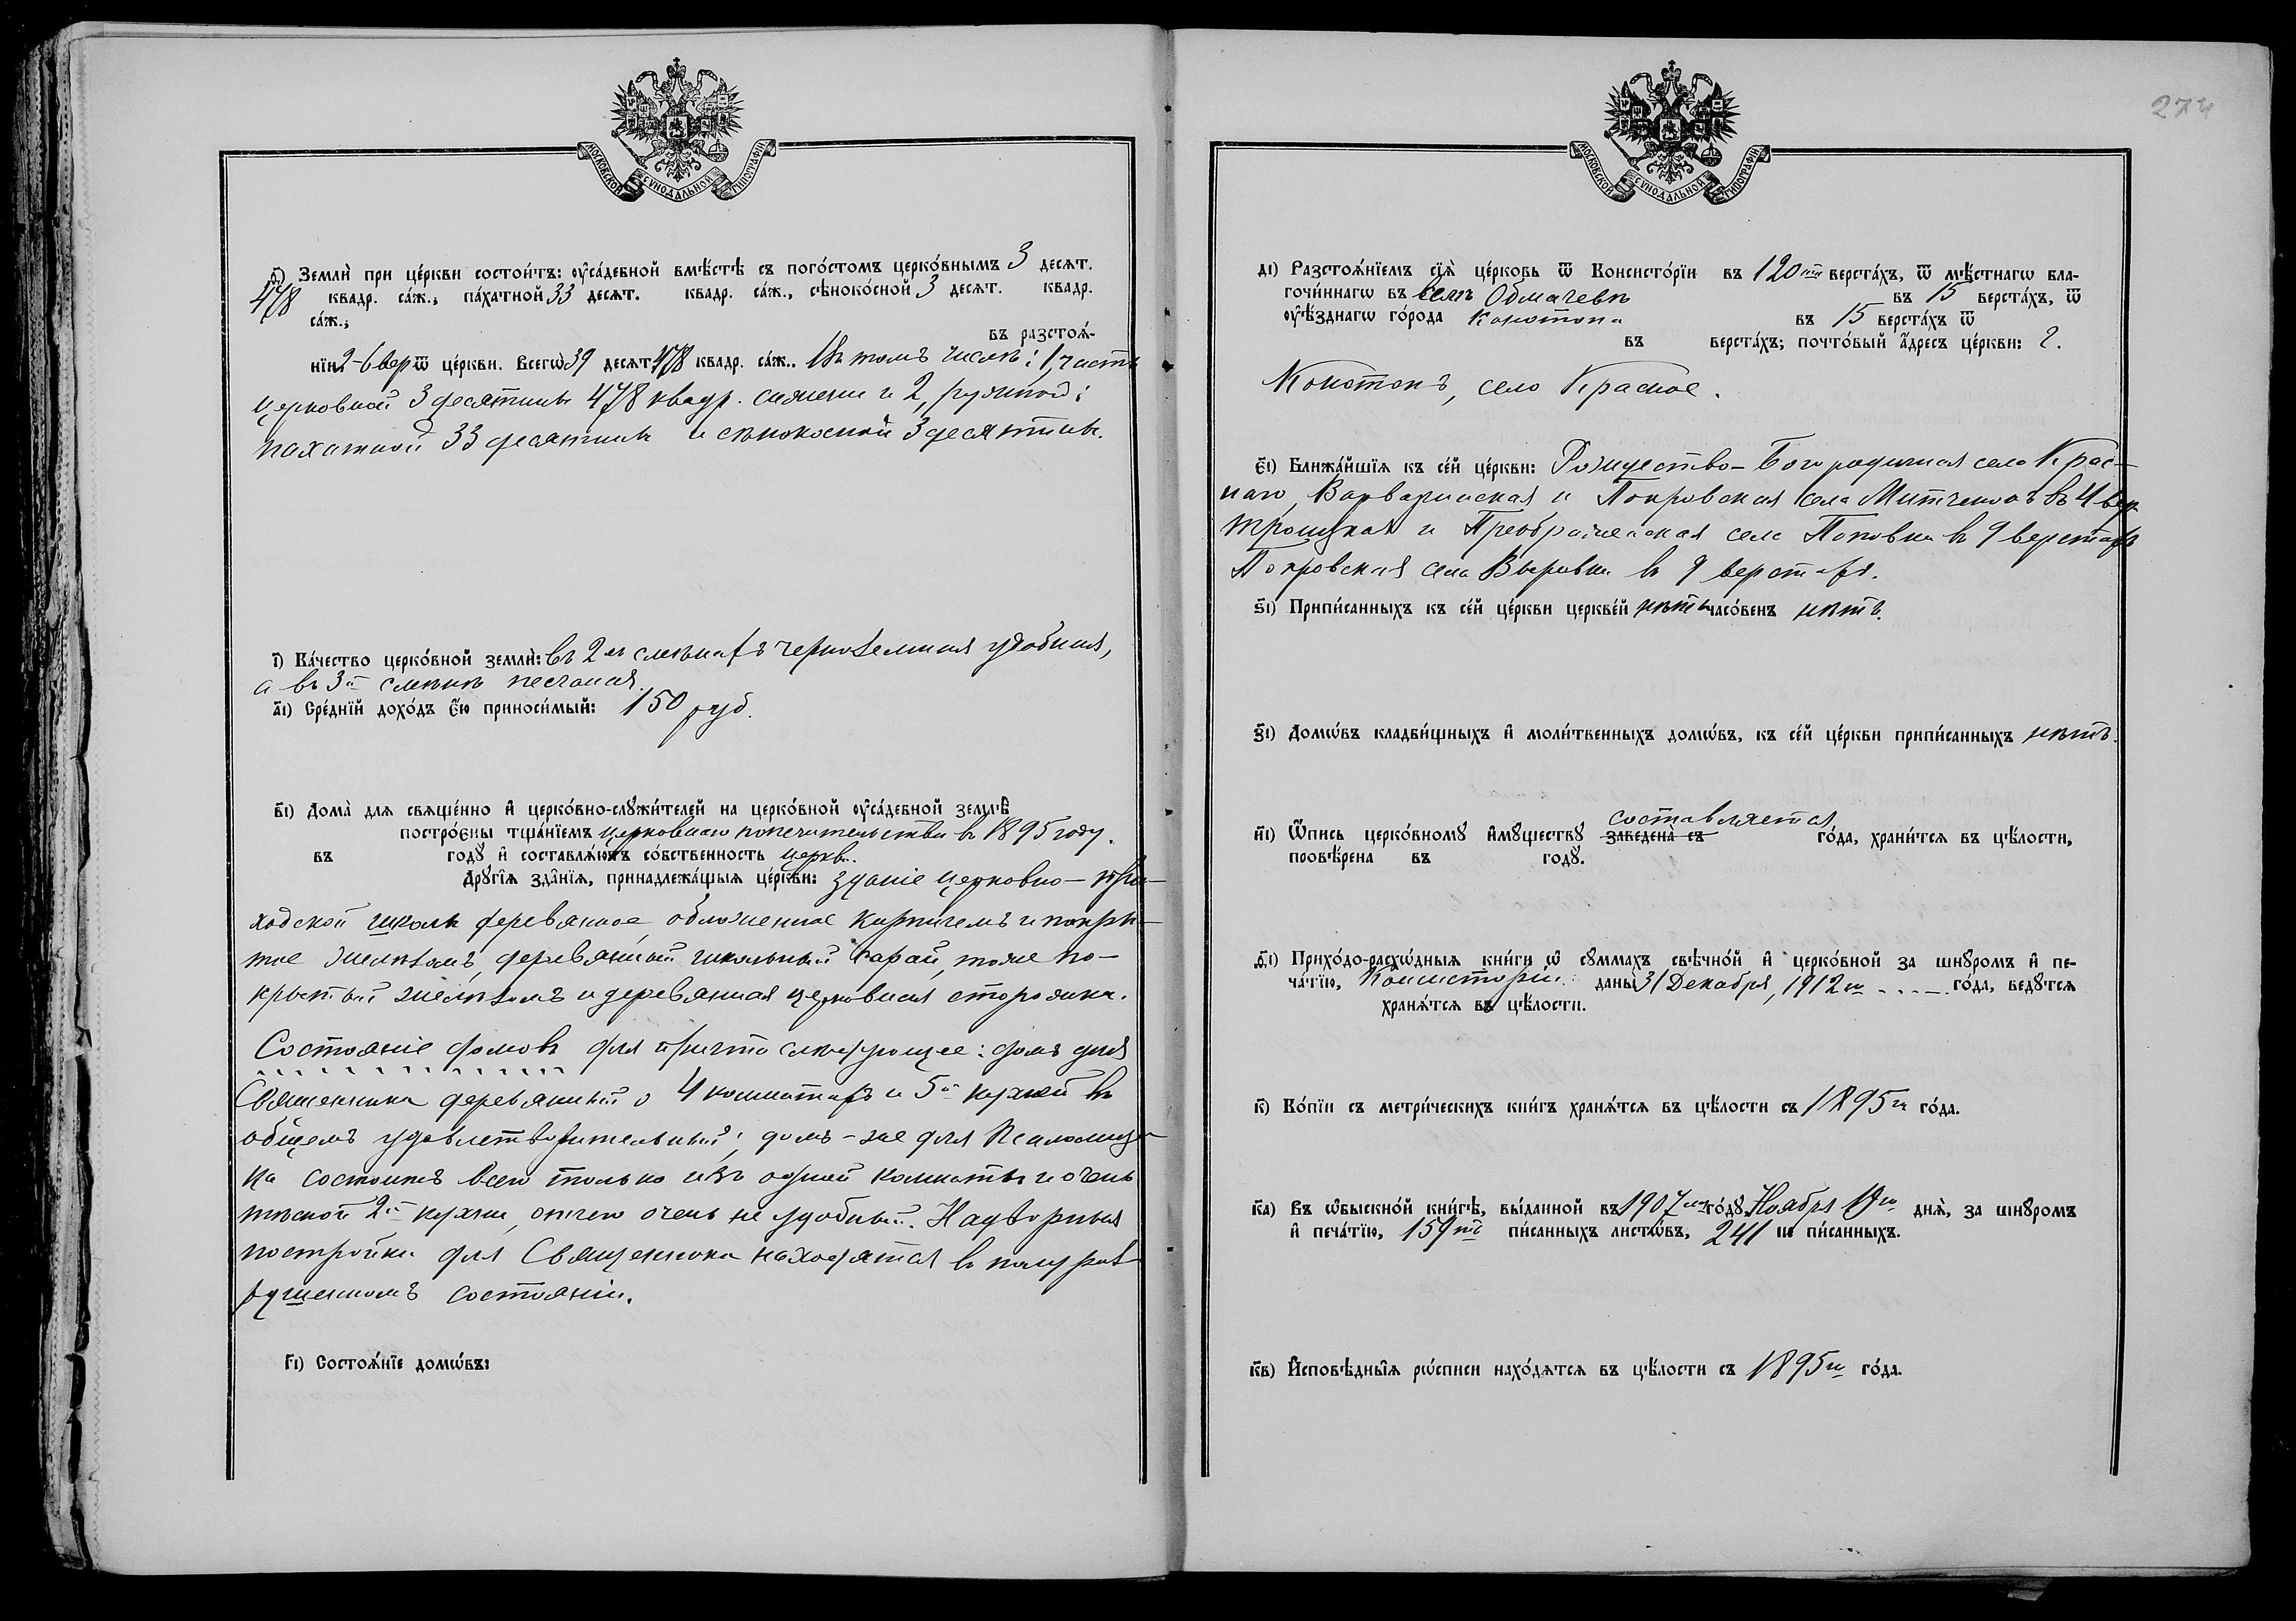 МОСКОВСКОЙ СѴНОДАЛЬНОЙ ТИПОГРАФІИ
ѳ҃) Землѝ при це́ркви состои́тъ: оуса́дебной вмѣ́стѣ съ пого́стомъ церко́внымъ 3 десят.
478 квадр. са́ж., па́хатной 33 десят. квадр. са́ж., сѣноко́сной 3 десят. квадр.
са́ж.;
въ разстоя́-
нїи 2-6 вер ѿ це́ркви. Всегѡ̀ 39 десят 478 квадр. са́ж.. Въ томъ числѣ: 1, часть
церковной 3 десятины 478 квадр. сажени и 2, ружной:
пахатной 33 десятины и сѣнокосной 3 десятины.
і҃) Ка́чество церко́вной землѝ: въ 2хъ смѣнахъ черноземная удобная,
а въ 3й смѣнѣ песчаная.
а҃і) Сре́днїй дохо́дъ е́ю приноси́мый: 150 руб.
в҃і) Домà для свяще́нно и церко́вно-слꙋжи́телей на церко́вной оуса́дебной землѣ̀
постро́ены тща́нїемъ церковнаго попечительства въ 1895 году.
въ годꙋ̀ и составля́ютъ со́бственность церкви.
Дрꙋгі́я зда̑нїя, принадлежа́щыя це́ркви: зданіе церковно-при-
ходской школы деревянное, обложенное кирпичемъ и покры-
тое желѣзомъ, деревянный школьный сарай, тоже по-
крытый желѣзомъ и деревянная церковная сторожка.
Состояніе домовъ для причта слѣдующее: домъ для
Священника деревянный о 4 комнатахъ и 5й кухней въ
общемъ удовлетворительный; домъ-же для Псаломщи-
ка состоитъ всего только изъ одной комнаты и очень
тѣсной 2й кухни, отчего очень не удобный. Надворныя
постройки для Священника находятся въ полураз-
рушенномъ состояніи.
г҃і) Состоя́нїе домѡ́въ:
274
МОСКОВСКОЙ СѴНОДАЛЬНОЙ ТИПОГРАФІИ
д҃і) Разстоя́нїемъ сїѧ̀ це́рковь ѿ Консисто́рїи въ 120ти верста́хъ, ѿ мѣ́стнагѡ бла-
гочи́ннагѡ въ селѣ Обмачевѣ въ 15 верста́хъ, ѿ
оуѣ́зднагѡ го́рода Конотопа въ 15 верста́хъ ѿ
въ верста́хъ; почто́вый а́дресъ це́ркви: г.
Конотопъ, село Красное.
е҃і) Ближа́йшїя къ се́й це́ркви: Рождество-Богородичная села Крас-
наго, Варваринская и Покровская села Митченокъ въ 4 вер.
Троицкая и Преображенская села Поповки въ 9 верстахъ
Покровская села Выровки въ 9 верстахъ.
ѕ҃і) Припи́санныхъ къ се́й це́ркви церкве́й нѣтъ часо́венъ нѣтъ.
з҃і) Домѡ́въ кладби́щныхъ и моли́твенныхъ домѡ́въ, къ се́й це́ркви припи́санныхъ нѣтъ.
и҃і) Ѻпись церко́вномꙋ имꙋ́ществꙋ заведена̀ съ составляется го́да, храни́тся въ цѣ́лости,
провѣ́рена въ годꙋ̀.
ѳ҃і) Прихо́до-расхѡ́дныя кни́ги ѡ сꙋ́ммахъ свѣчно́й и церко́вной за шнꙋро́мъ и пе-
ча́тїю, Консисторіи даны̀ 31 Декабря, 1912го го́да, ведꙋ́тся
храня́тся въ цѣ́лости.
к҃) Ко́пїи съ метри́ческихъ кни́гъ храня́тся въ цѣ́лости съ 1895го го́да.
к҃а) Въ ѡбыскно́й кни́гѣ, вы́данной въ 1907мъ го́дꙋ Ноября 19го дня̀, за шнꙋро́мъ
и печа́тїю, 159ть пи́санныхъ листѡ́въ, 241 не пи́санныхъ.
к҃в) Исповѣ̑дныя рѡ́списи нахо́дятся въ цѣ́лости съ 1895го го́да.